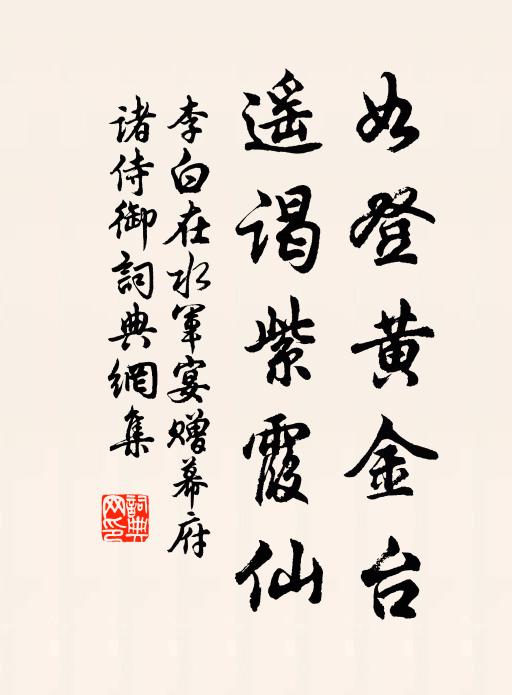 如登黄金台
遥谒紫霞仙
李白在水军宴赠幕府
诸侍御詞典網集
詞典
网印